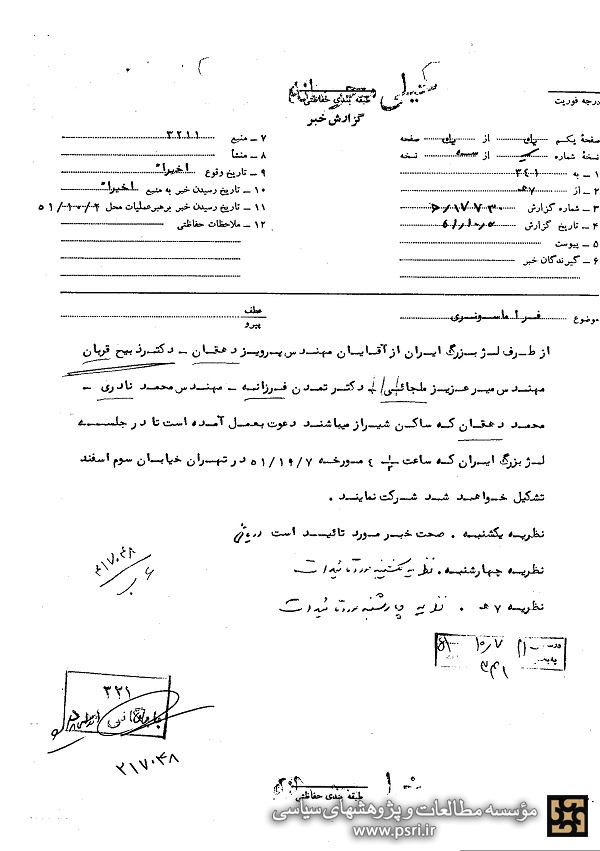 طبقه بندی حفاظتی
گزارش خبر
درجه فوریت
صفحه یکم یک از یک صفحه
نسخه شماره از سه نسخه
۱ – به ۳۴۱
۲ – از ۷ه
۳ – شماره گزارش
۴ – تاریخ گزارش
۵ – پیوست
۶ – گیرندگان خبر
۷ – منبع ۳۲۱۱
۸ – منشأ
۹ – تاریخ وقوع اخیراً
۱۰ – تاریخ رسیدن خبر به منبع اخیراً
۱۱ – تاریخ رسیدن خبر برهبرعملیات محل ۵۱/۱۰/۲
۱۲ – ملاحظات حفاظتی
موضوع فراماسونری
عطف
پیرو
از طرف لژ بزرگ ایران از آقایان مهندس پرویز دهقان – دکتر ذبیح قربان
مهندس میرعزیز ملجائی – دکتر تمدن فرزانه – مهندس محمد نادری –
محمد دهقان که ساکن شیراز میباشند دعوت بعمل آمده است تا در جلسه
لژ بزرگ ایران که ساعت مورخه در تهران خیابان سوم اسفند
تشکیل خواهد شد شرکت نمایند .
نظریه یکشنبه . صحت خبر مورد تائید است
نظریه چهارشنبه . نظریه یکشنبه مورد تائید است
نظریه ۷ه . نظریه چهارشنبه مورد تائید است
۲۱۷۰۴۸
۳۴۱
۳۲۱
۲۱۷۰۴۸
طبقه بندی حفاظتی
مؤسسه مطالعات و پژوهشهای سیاسی
www.psri.ir